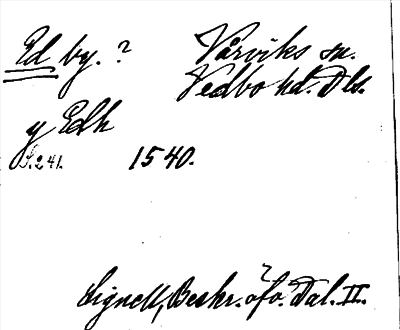 Ed by. ? Vårviks sn.
Vedbo hd. Dls.
y Edh
S. 241. 1540.
Lignell, Beskr. öfv. Dal. II.